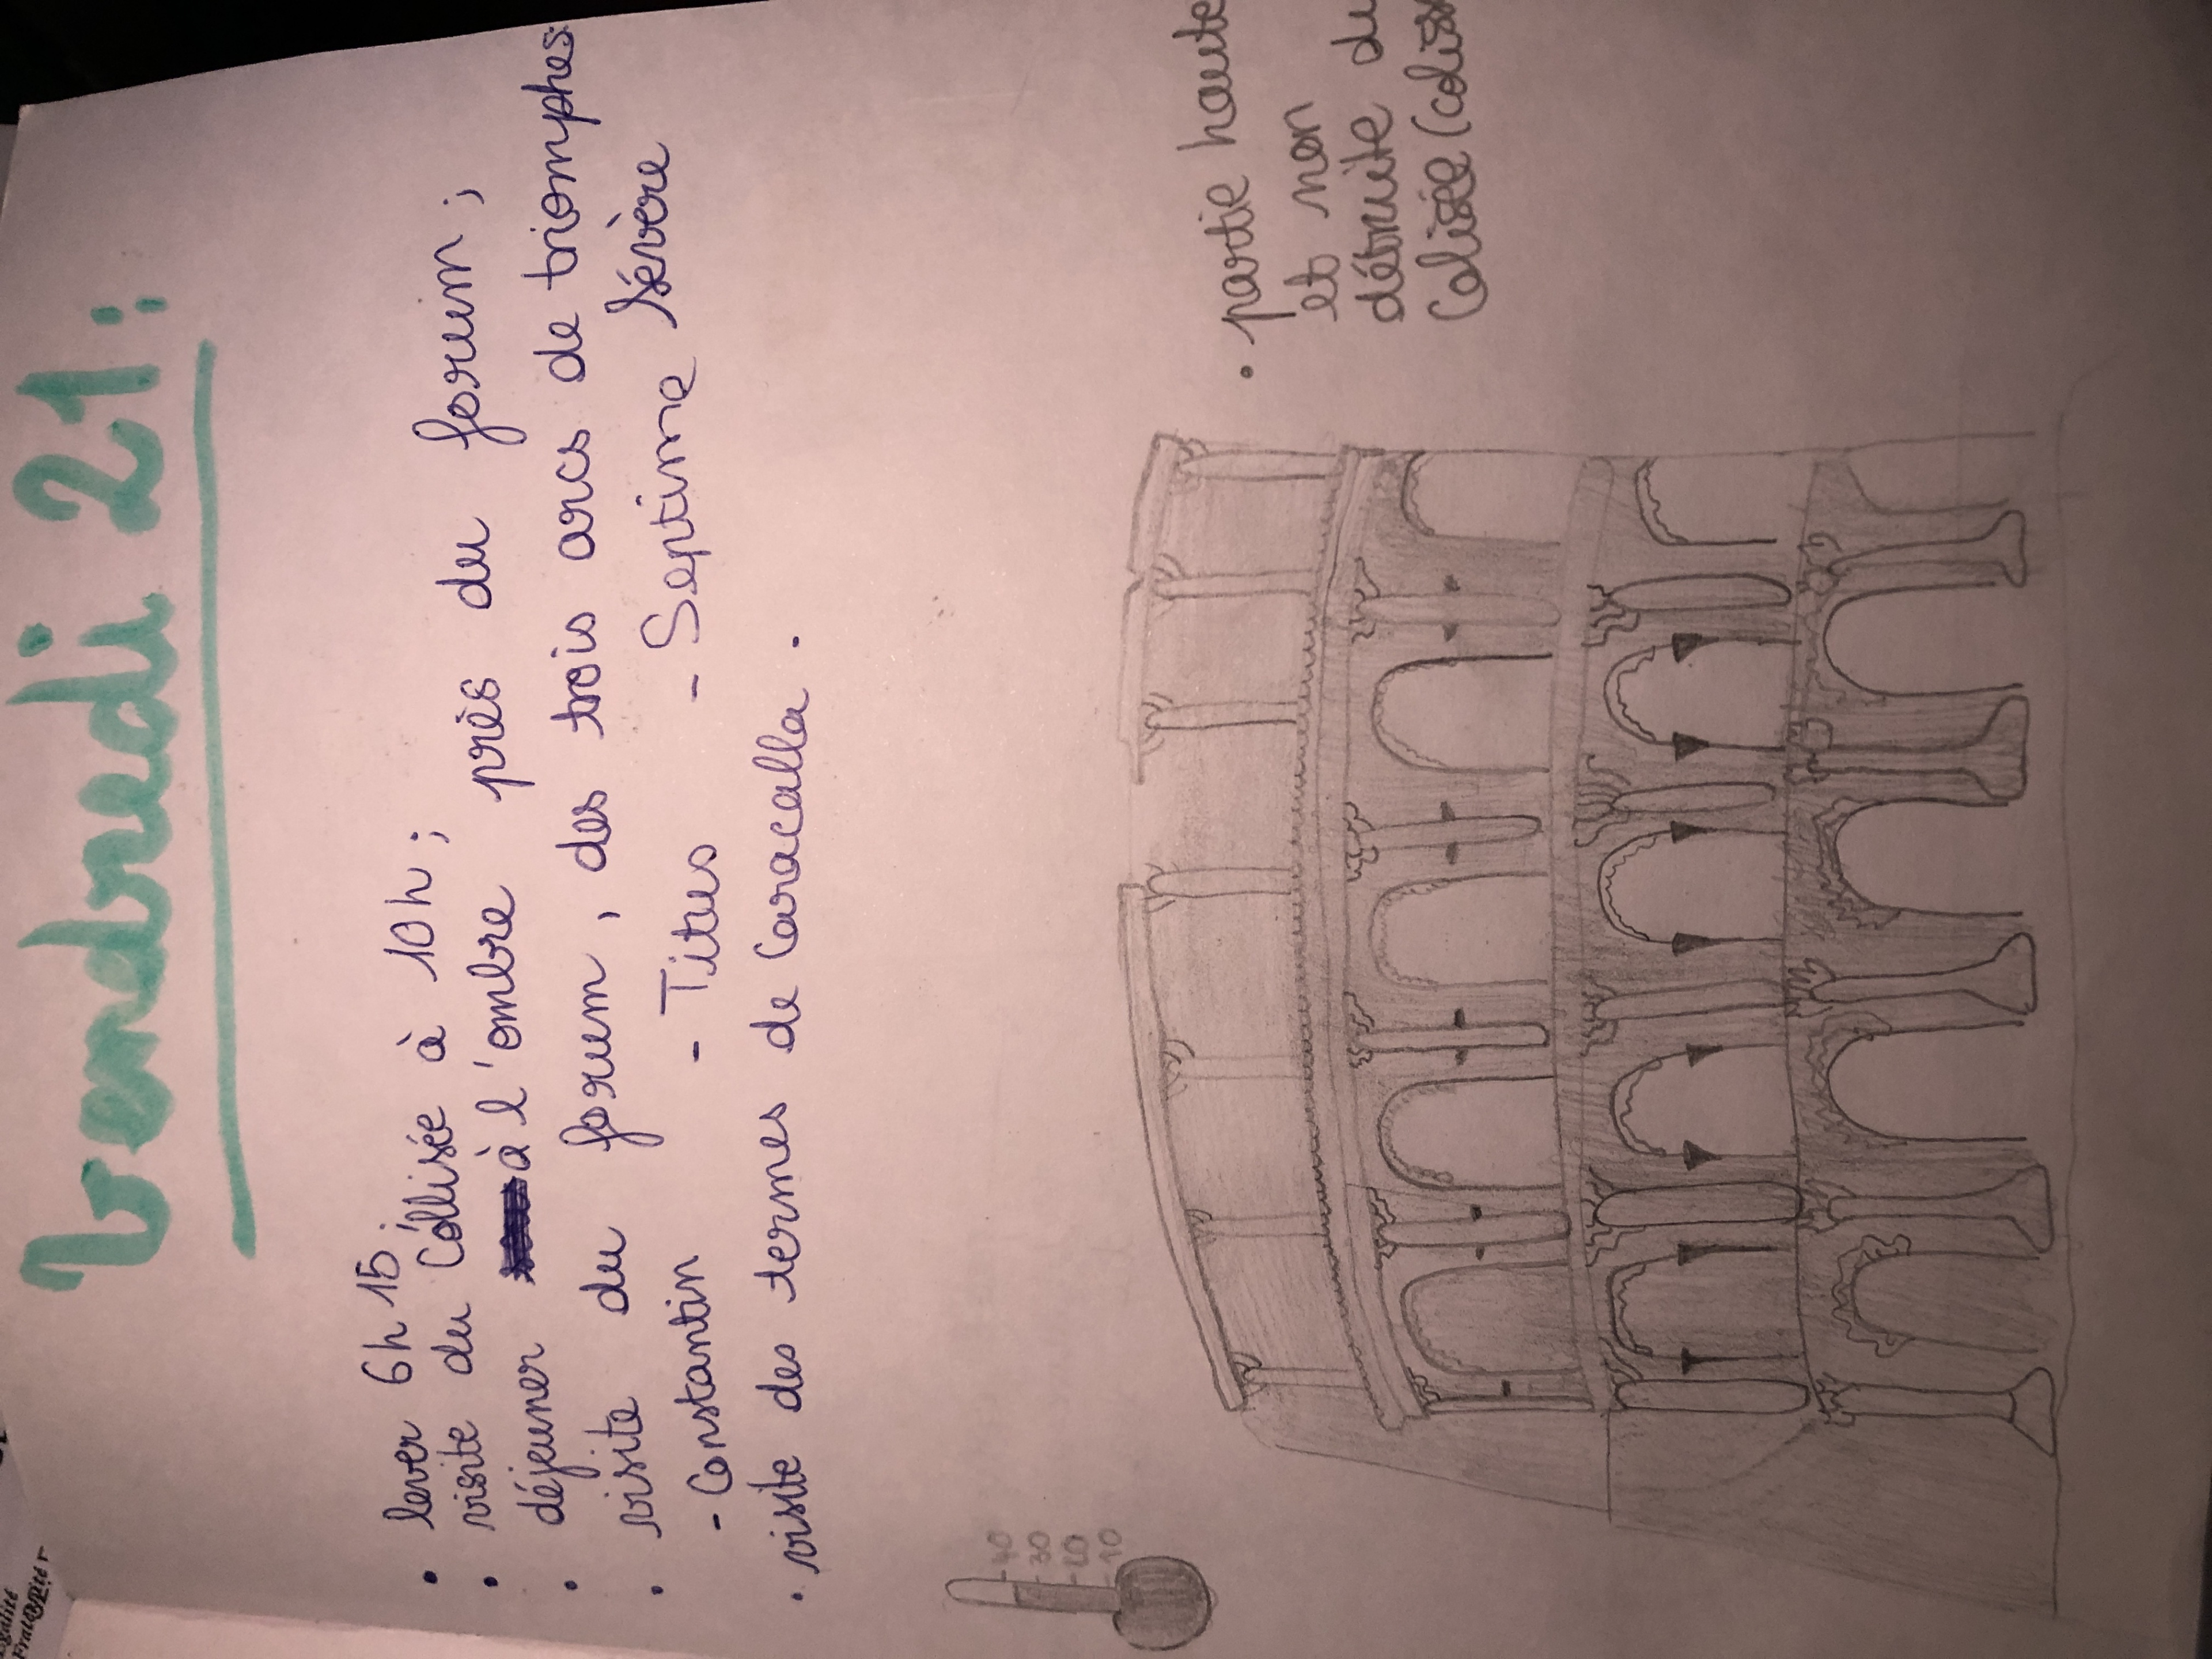 Vendredi 21 :
• lever 6h15 ;
• visite du Cólisée à 10h ;
• déjeuner à l'ombre près du forum ;
• visite du forum, des trois arcs de triomphes:
- Constantin - Titus - Septime Sévère
• visite des termes de Caracalla.
40
30
20
10
• partie haute
et non
détruite du
Colisée (colis